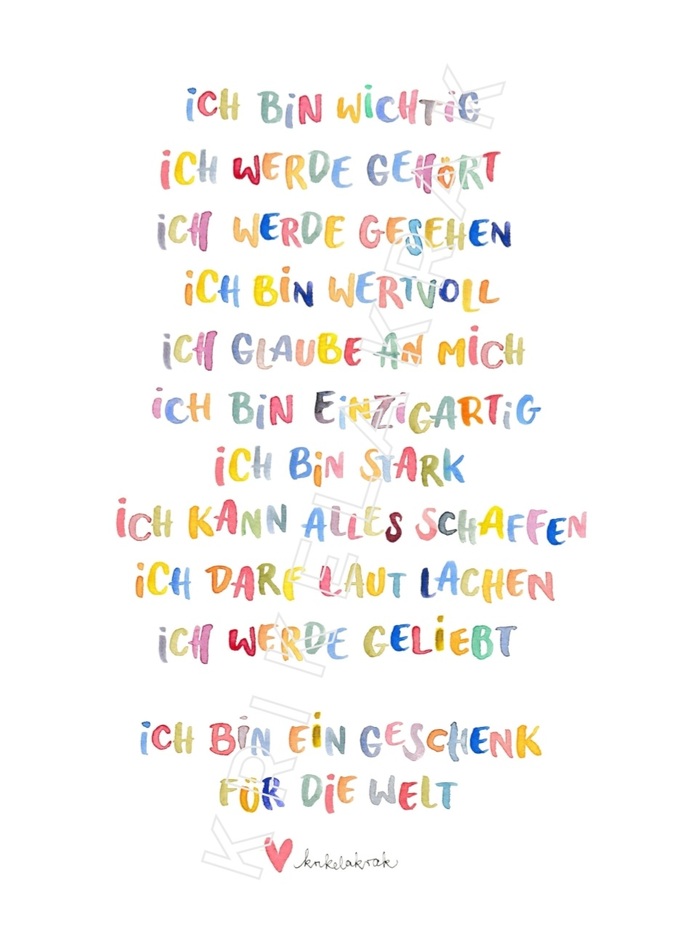 iCH BiN WiCHTiG
iCH WERDE GEHÖRT
iCH WERDE GESEHEN
iCH BiN WERTVOLL
iCH GLAUBE AN MiCH
iCH BiN EiNZiGARTiG
iCH BiN STARK
iCH KANN ALLES SCHAFFEN
iCH DARF LAUT LACHEN
iCH WERDE GELiEBT
iCH BiN EiN GESCHENK
FÜR DiE WELT
krikelakrak
KRIKELAKRAK